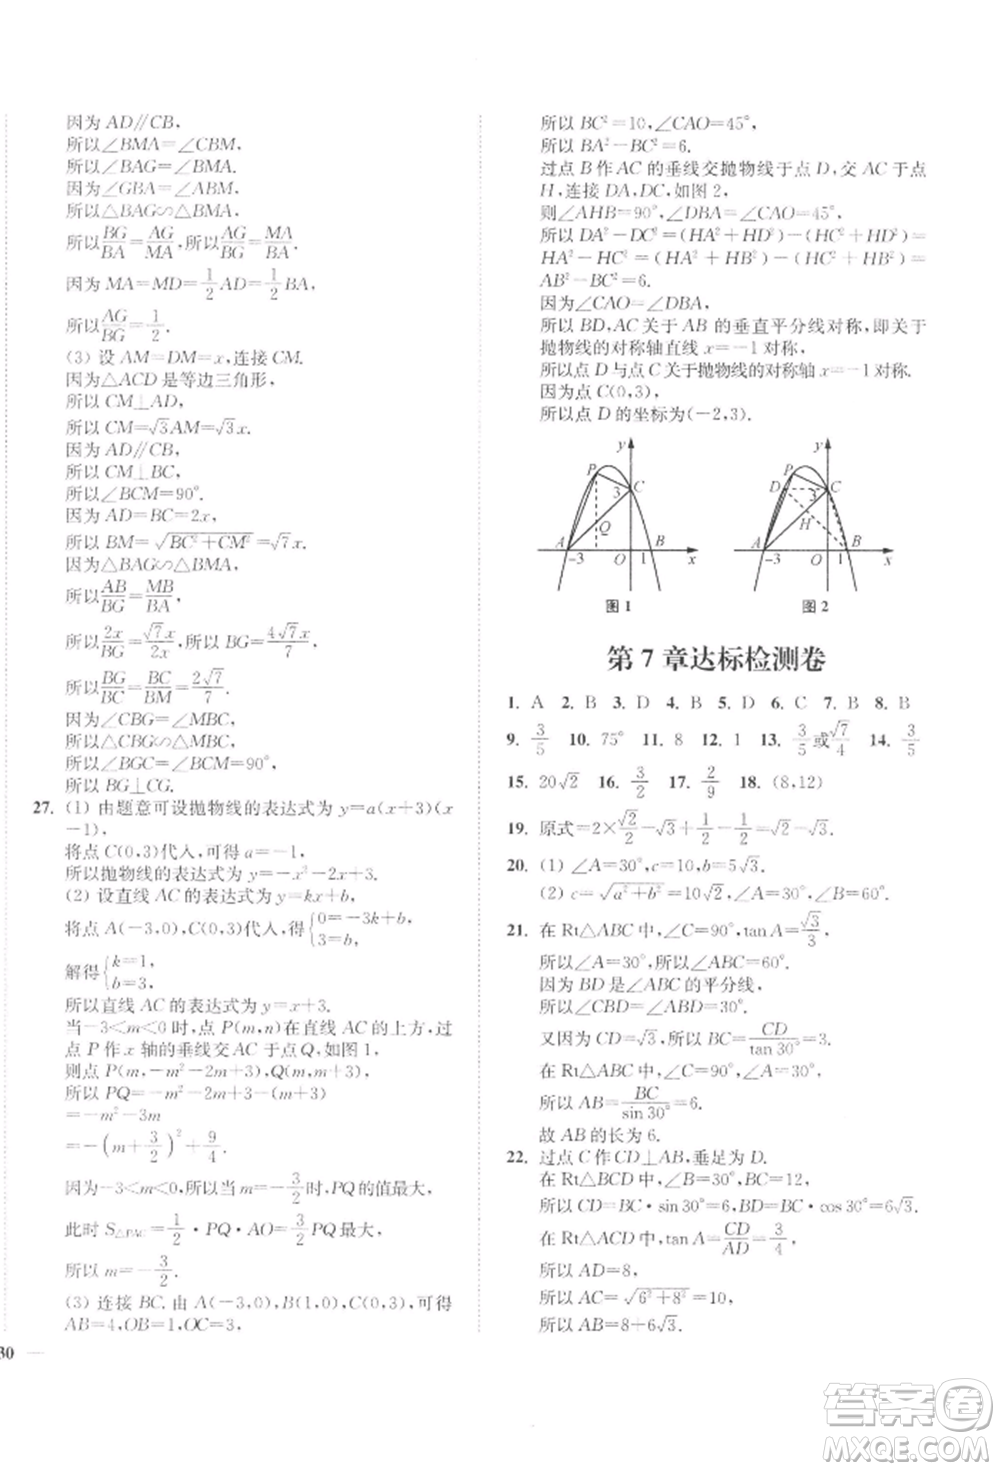 因为 AD∥CB,
所以∠BMA=∠CBM,
所以∠BAG=∠ABM.
因为∠GBA=∠ABM,
所以△BAG∽△BMA,
所以BG/BA=AG/MA,所以AG/BG=MA/BA.
因为 MA=MD=1/2AD=1/2BA,
所以AG/BG=1/2.
(3) 设 AM=DM=x,连接 CM.
因为△ACD是等边三角形,
所以 CM⊥AD,
所以 CM=√3AM=√3x.
因为 AD∥CB,
所以 CM⊥BC,
所以∠BCM=90°.
因为 AD=BC=2x,
所以 BM=√(BC²+CM²)=√7x.
因为△BAG∽△BMA,
所以AB/BG=MB/BA,
所以2x/BG=√7x/2x,所以 BG=4√7x/7.
所以BG/BC=BC/BM=2√7/7.
因为∠CBG=∠MBC,
所以△CBG∽△MBC,
所以∠BGC=∠BCM=90°,
所以 BG⊥CG.
27. (1) 由题意可设抛物线的表达式为 y=a(x+3)(x
-1),
将点 C(0,3)代入,可得 a=-1,
所以抛物线的表达式为 y=-x²-2x+3.
(2) 设直线 AC 的表达式为 y=kx+b,
将点 A(-3,0),C(0,3)代入,得{0=-3k+b, 3=b,
解得{k=1, b=3.
所以直线 AC 的表达式为 y=x+3.
当-3<m<0 时,点 P(m,n)在直线 AC 的上方,过
点 P 作 x 轴的垂线交 AC 于点 Q,如图 1,
则点 P(m,-m²-2m+3),Q(m,m+3),
所以 PQ=-m²-2m+3-(m+3)
=-m²-3m
=-(m+3/2)²+9/4.
因为-3<m<0,所以当 m=-3/2时,PQ的值最大,
此时 S△PAC=1/2·PQ·AO=3/2PQ最大,
所以 m=-3/2.
(3) 连接 BC. 由 A(-3,0),B(1,0),C(0,3),可得
AB=4,OB=1,OC=3,
30
所以 BC²=10,∠CAO=45°,
所以 BA²-BC²=6.
过点 B 作 AC 的垂线交抛物线于点 D,交 AC 于点
H,连接 DA,DC,如图 2,
则∠AHB=90°,∠DBA=∠CAO=45°,
所以 DA²-DC²=(HA²+HD²)-(HC²+HD²)=
HA²-HC²=(HA²+HB²)-(HC²+HB²)=
AB²-BC²=6.
因为∠CAO=∠DBA,
所以 BD,AC 关于 AB 的垂直平分线对称,即关于
抛物线的对称轴直线 x=-1 对称,
所以点 D 与点 C 关于抛物线的对称轴 x=-1 对称.
因为点 C(0,3),
所以点 D 的坐标为(-2,3).
y P 3 C Q A -3 O 1 B x
图 1
y P D 3 C H A -3 O 1 B x
图 2
第 7 章达标检测卷
1. A 2. B 3. D 4. B 5. D 6. C 7. B 8. B
9. 3/5 10. 75° 11. 8 12. 1 13. 3/5或√7/4 14. 3/5
15. 20√2 16. 3/2 17. 2/9 18. (8,12)
19. 原式=2×√2/2-√3+1/2-1/2=√2-√3.
20. (1) ∠A=30°,c=10,b=5√3.
(2) c=√(a²+b²)=10√2,∠A=∠B=45°.
21. 在 Rt△ABC 中,∠C=90°,tan A=√3/3,
所以∠A=30°,所以∠ABC=60°.
因为 BD 是∠ABC 的平分线,
所以∠CBD=∠ABD=30°.
又因为 CD=√3,所以 BC=CD/tan 30°=3.
在 Rt△ABC 中,∠C=90°,∠A=30°,
所以 AB=BC/sin 30°=6.
故 AB 的长为 6.
22. 过点 C 作 CD⊥AB,垂足为 D.
在 Rt△BCD 中,∠B=30°,BC=12,
所以 CD=BC·sin30°=6,BD=BC·cos 30°=6√3.
在 Rt△ACD 中,tan A=CD/AD=3/4,
所以 AD=8,
所以 AC=√(6²+8²)=10,
所以 AB=8+6√3.
答案卷
MXQE.COM